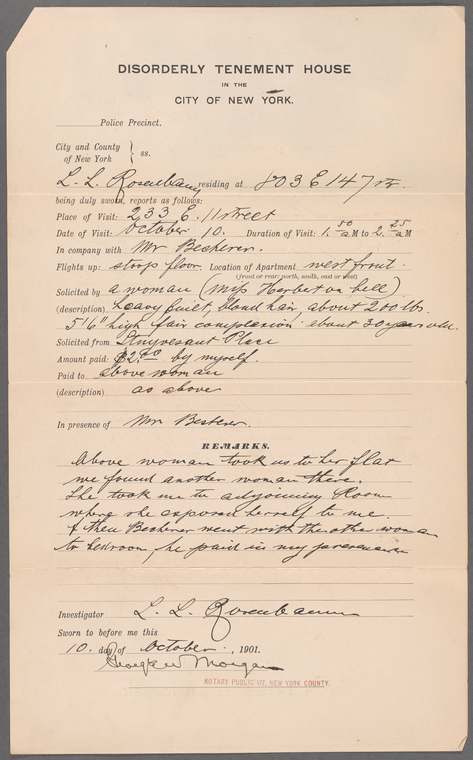 DISORDERLY TENEMENT HOUSE
IN THE
CITY OF NEW YORK.
Police Precinct.
City and County
of New York } ss.
L. L. Rosenbaum residing at 803 E 147 St.
being duly sworn, reports as follows:
Place of Visit: 233 E. 11 street
Date of Visit: October 10. Duration of Visit: 1.50 a M to 2.25 a M
In company with Mr Bescherer.
Flights up: stoop floor. Location of Apartment west front.
(front or rear: north, south, east or west)
Solicited by a woman (Miss Herbert on bell)
(description) heavy built, blond hair, about 200 lbs.
5'6" high fair complexion about 30 years old.
Solicited from Stuyvesant Place
Amount paid: $2.00 by myself.
Paid to above woman
(description) as above
In presence of Mr. Bescherer.
REMARKS.
Above woman took us to her flat
we found another woman there.
She took me to adjoining Room
where she exposed herself to me.
& then Bescherer went with the other woman
to bedroom, he paid in my presence
Investigator L. L. Rosenbaum
Sworn to before me this
10. day of October, 1901.
George W Morgan
NOTARY PUBLIC NEW YORK COUNTY.